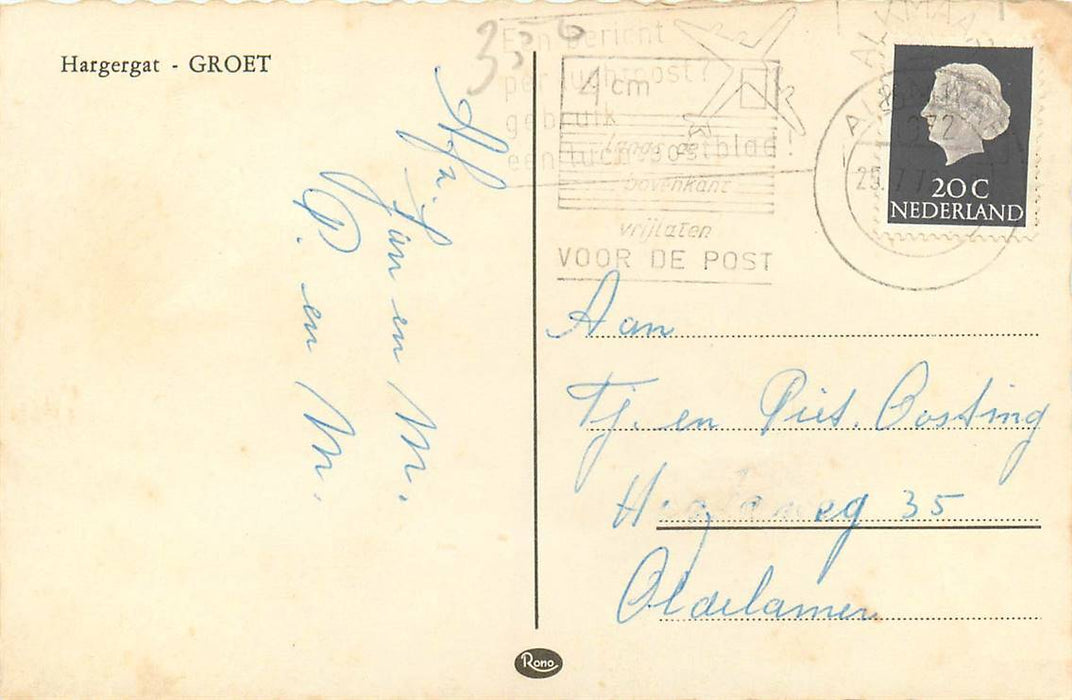 Hargergat - GROET
356
Een bericht
per luchtpost?
gebruik
een luchtpostblad!
4 cm
langs de
bovenkant
vrijlaten
VOOR DE POST
ALKMAAR
25.7.7
20 C
NEDERLAND
Jan en M.
P. en M.
Aan
Tj. en Piet. Oosting
35
Oldelamer
Rono